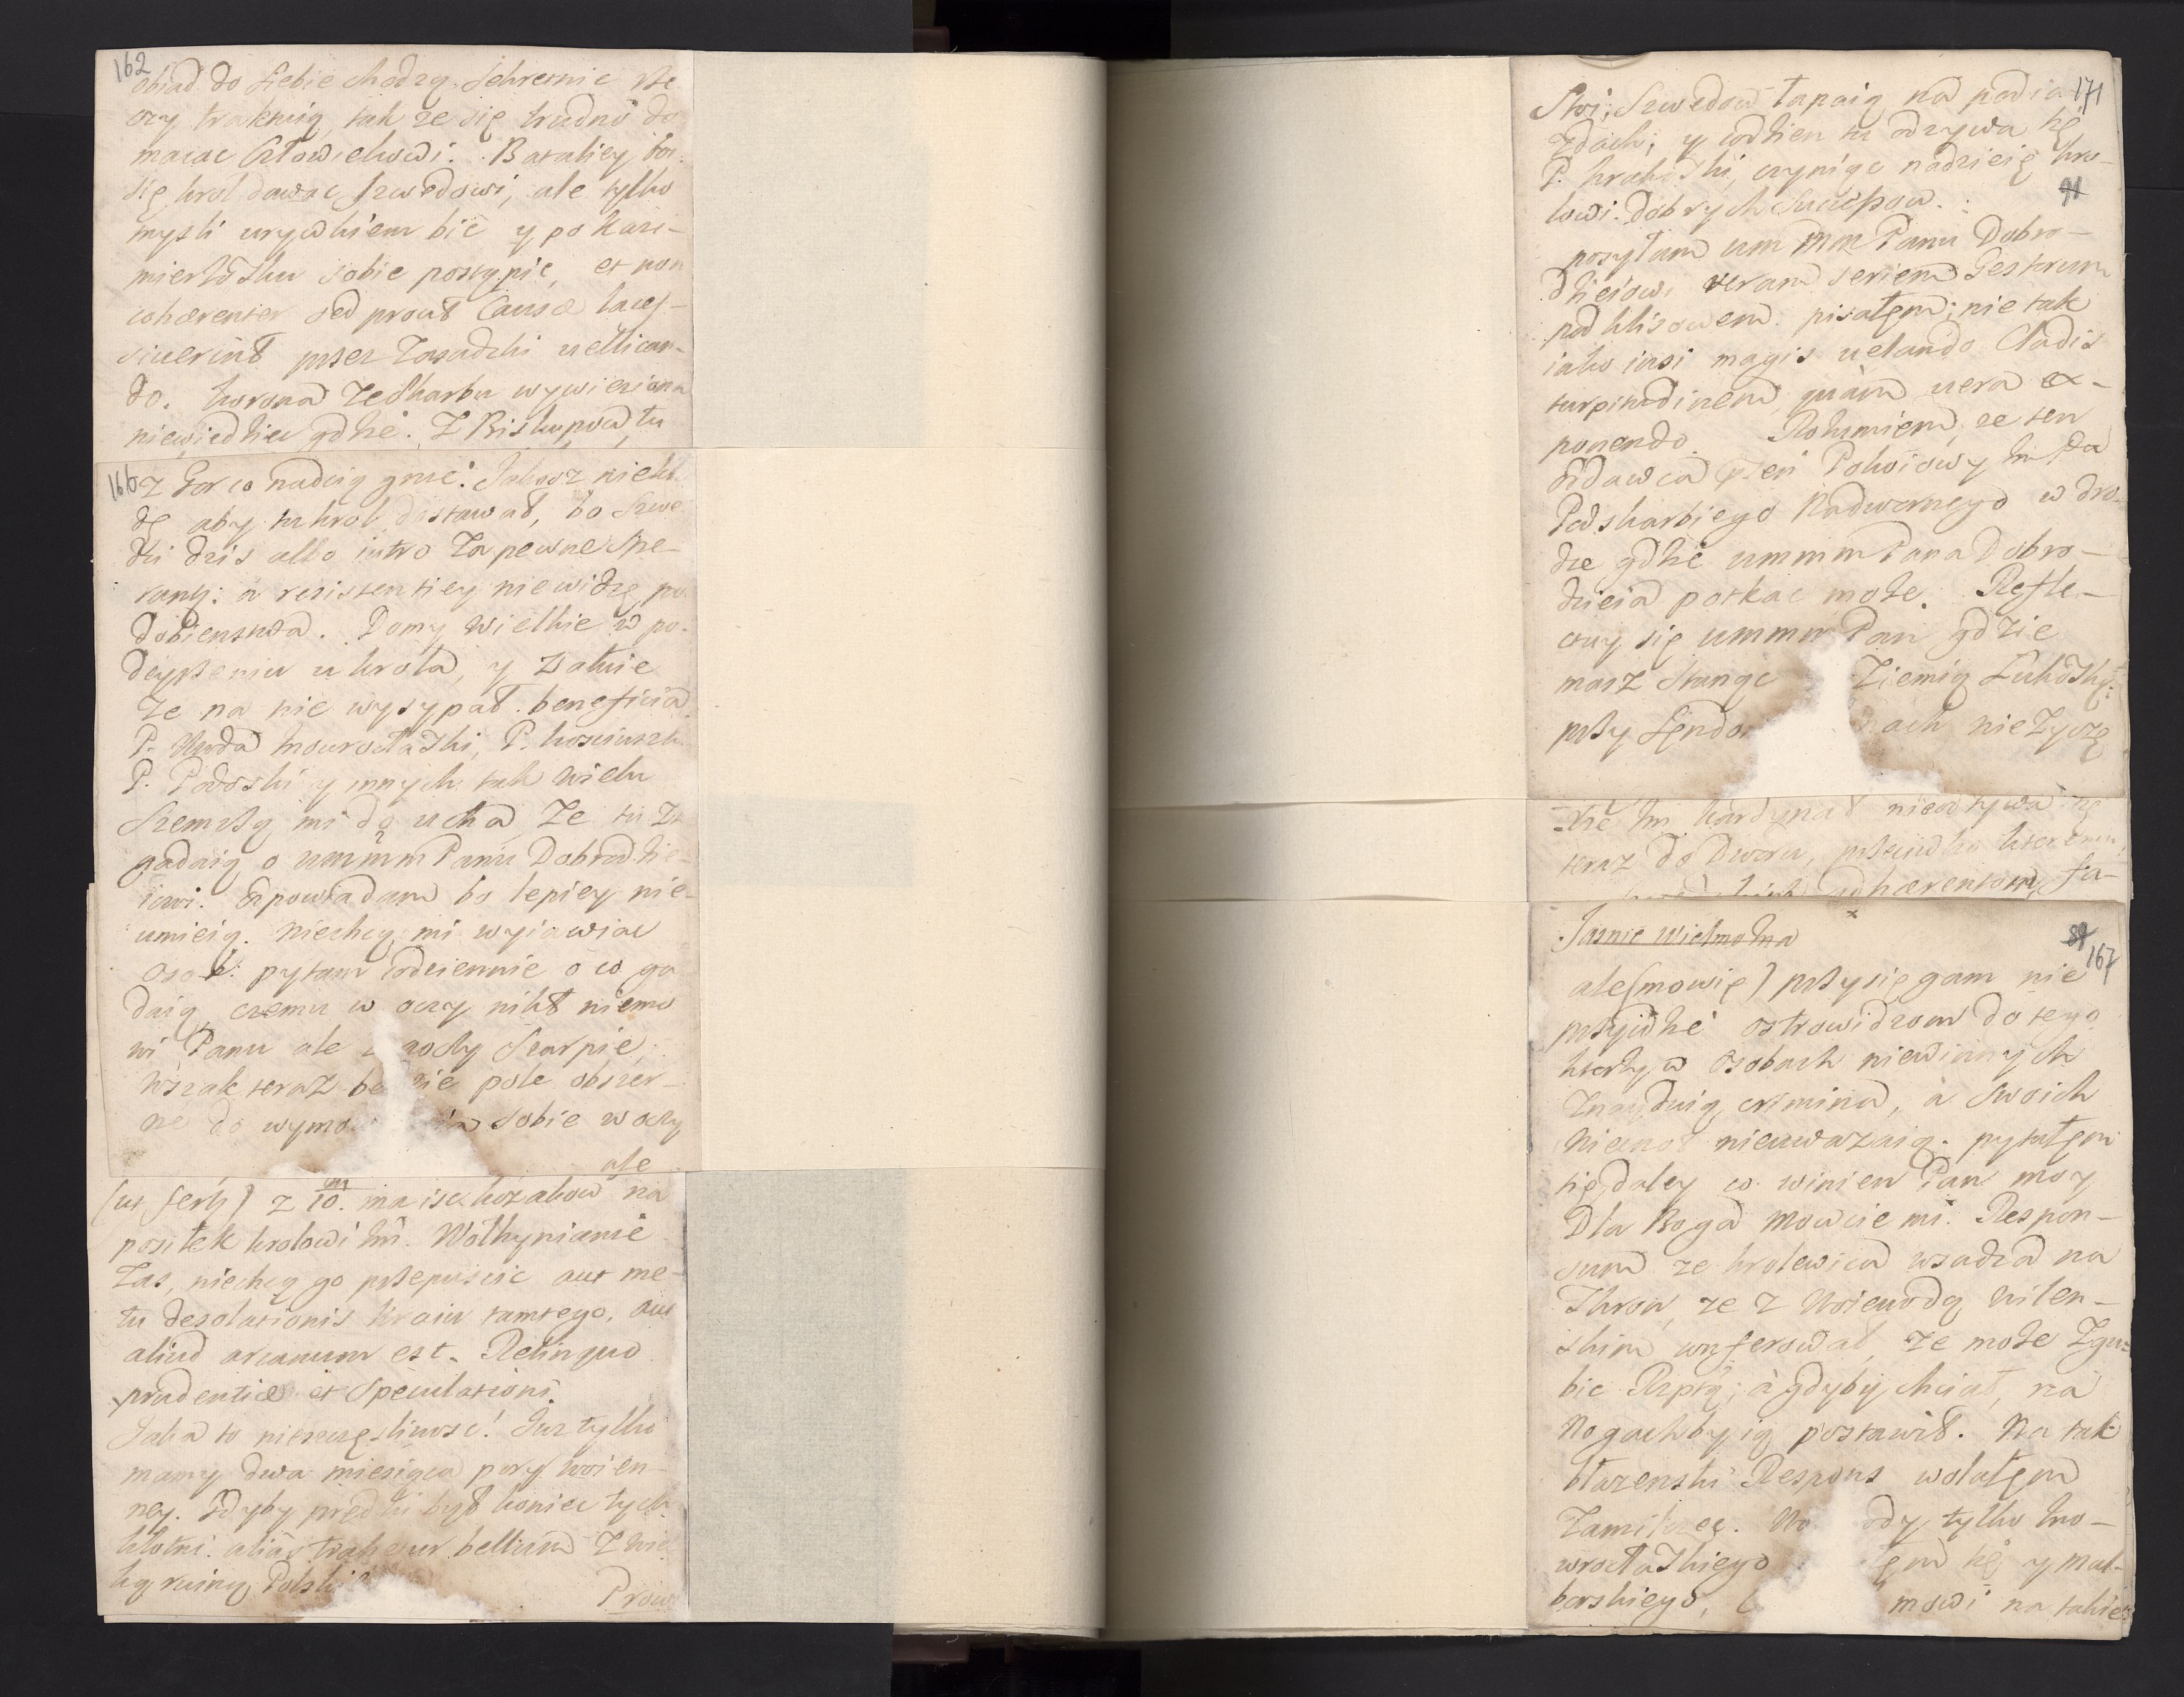 162
obiad do siebie chodzą. Sekretnie rze
czy traktuią, tak ze się trudno do
macac człowiekowi. Bataliey boi
się krol dawac Szwedowi, ale tylko
mysli urywkiem bić y po kazi-
mierzowsku sobie postąpić, et non
cohærenter sed prout Causæ laces-
siuerint przez Zasadzki uellican-
do. Korona ze Skarbu wywieziona
niewiedziec gdzie. Z Biskupow tu
166
z Gor co nadcią gnie.
dę aby tu krol dostawał, bo Szwe
dzi dzis albo iutro Zapewne spe-
rantur: a resistentiey niewidzę po
dobienstwa. Domy Wielkie w po-
deyrzeniu u krola, y załuie
ze na nie wysypał beneficia.
P.
P. Potoski y innych tak wielu
Szemrzą mi do ucha Ze tu
gadaią o ummm Panu Dobrodzie-
iowi. Odpowiadam bo lepiey nie-
umieią. Niechcą mi wyiawiac
osob: pytam codziennie o co ga
daią, czemu w oczy nikt niemo
wi Panu ale z
wszak teraz be zie pole obszer-
ne do wymow sobie w oczy
ale
(ut fertur) z 10. m isc kozakow na
posiłek krolowi Imci. Wołhynianie
Zas, niechcą go przepuscic aut me-
tu desolationis kraiu tamtego, aut
aliud arcanum est. Relinquo
prudentiæ et speculationi.
Jaka to nieszczęsliwosc! Juz tylko
mamy dwa miesiąca pory woien-
ney. Gdyby prędki był koniec tych
kłotni. alias trahetur bellum Z wiel
ką ruiną Polski
Prow
171
91
Szwedow łapaią na podia
zdach; y codzien tu odzywa się
P. krakowski, czyniąc nadzieię kro-
lowi dobrych Successow.
posyłam um mm Panu Dobro-
dzieiowi veram seriem Gestorum
pod kliszowem. pisałem; nie tak
iako insi magis uelando Cladis
turpitudinem, quàm uera ex-
ponendo. Rozumiem, ze ten
oddawca Pokoiowy Im Pa
Podskarbiego Nadwornego w dro-
dze gdzie ummm Pana Dobro-
dzieia potkac moze. Refle-
ctuy się ummm Pan gdzie
masz stanąc Ziemią Łukowską.
przy Sędo ach nie Zyczę
Im kardynał nieodzywa się
teraz do Dworu, przeciwko ktoremu,
adhærentom, fa-
Jasnie Wielmozna
89
167
ale (mowię) przysięgam nie
przyidzie ostrowidzom do tego
ktorzy w osobach niewinnych
Znayduią crimina, a swoich
niecnot nieuwazaią. pytałem
się daley co winien Pan moy
Dla Boga mowcie mi. Respon-
sum ze krolewica wsadza na
Thron, ze z Woiewodą Wilen-
skim conferował, ze moze Zgu-
bic Rzptą; a gdyby chciał, na
Nogachby ią postawił. Na tak
błazenski Respons wolałem
Zamilczec. Wo ody tylko Ino-
wrocławskiego em się y Mal-
borskiego, mowi na takie